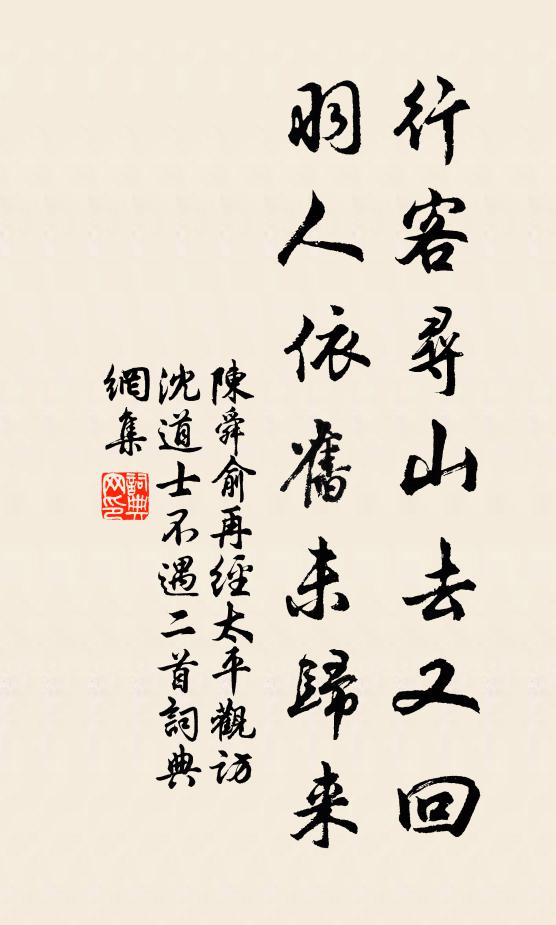 行客尋山去又回
羽人依舊未歸来
陳舜俞再經太平觀訪
沈道士不遇二首詞典
網集
詞典
网印